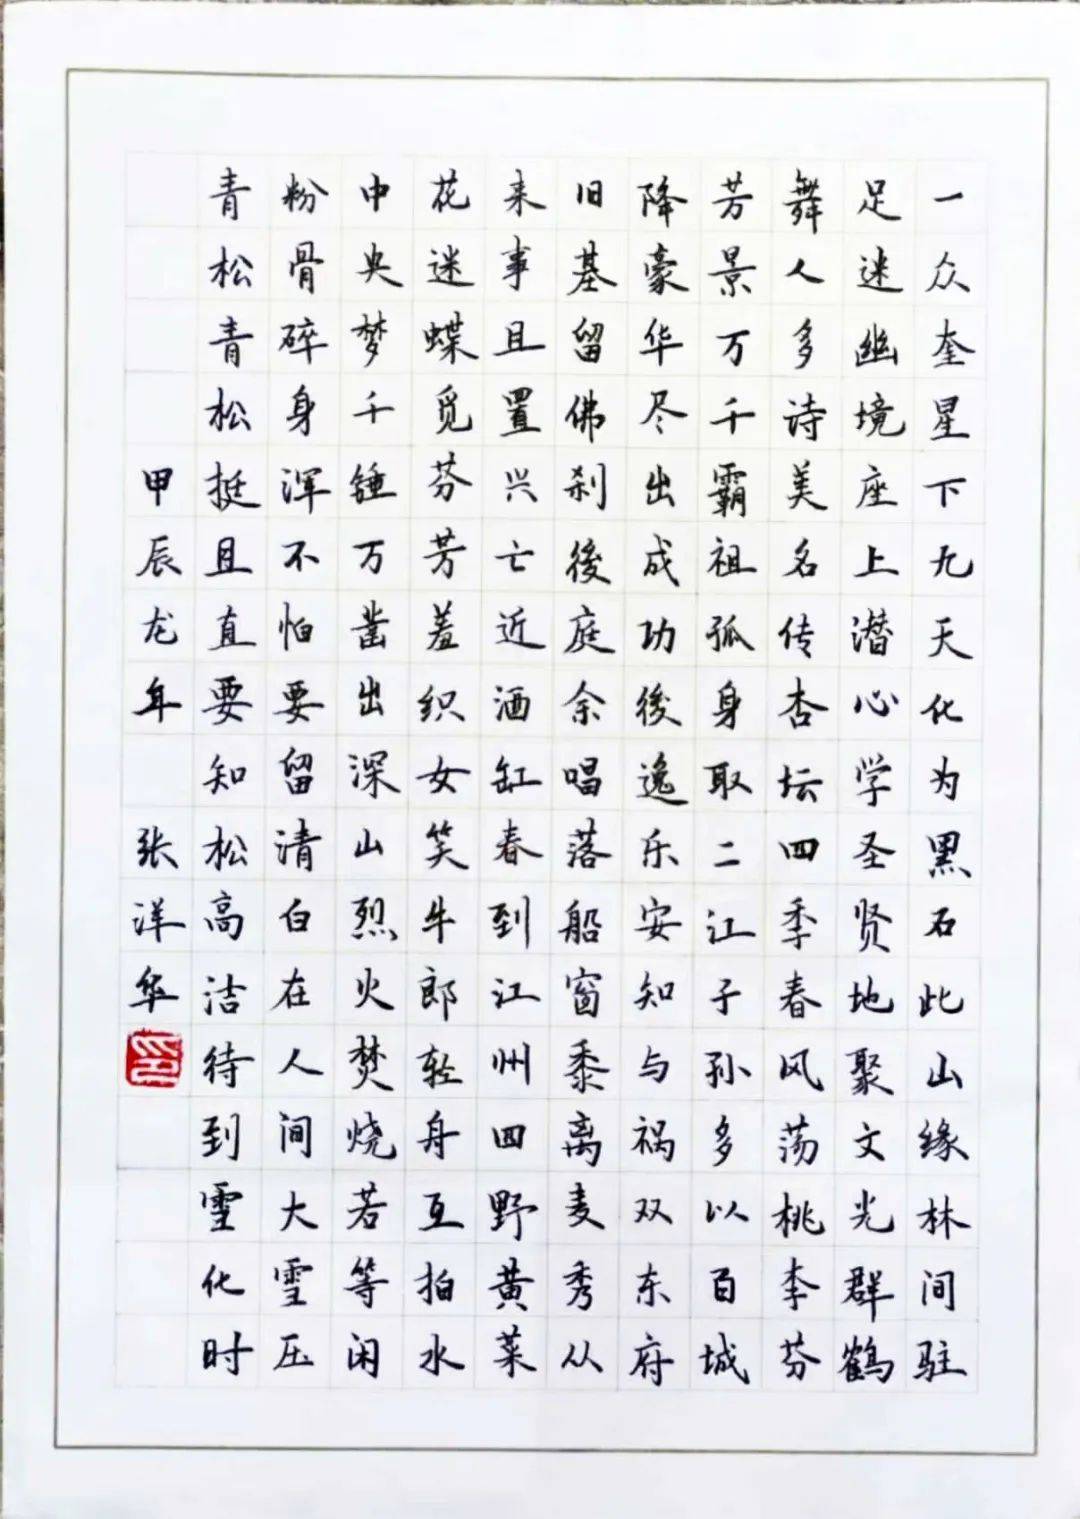 一众奎星下九天化为黑石此山缘林间驻
足迷幽境座上潜心学圣贤地聚文光群鹤
舞人多诗美名传杏坛四季春风荡桃李芬
芳景万千霸祖孤身取二江子孙多以百城
降豪华尽出成功後逸乐安知与祸双东府
旧基留佛刹後庭余唱落船窗黍离麦秀从
来事且置兴亡近酒缸春到江州四野黄菜
花迷蝶觅芬芳羞织女笑牛郎轻舟互拍水
中央梦千锤万凿出深山烈火焚烧若等闲
粉骨碎身浑不怕要留清白在人间大雪压
青松青松挺且直要知松高洁待到雪化时
甲辰龙年 张洋华